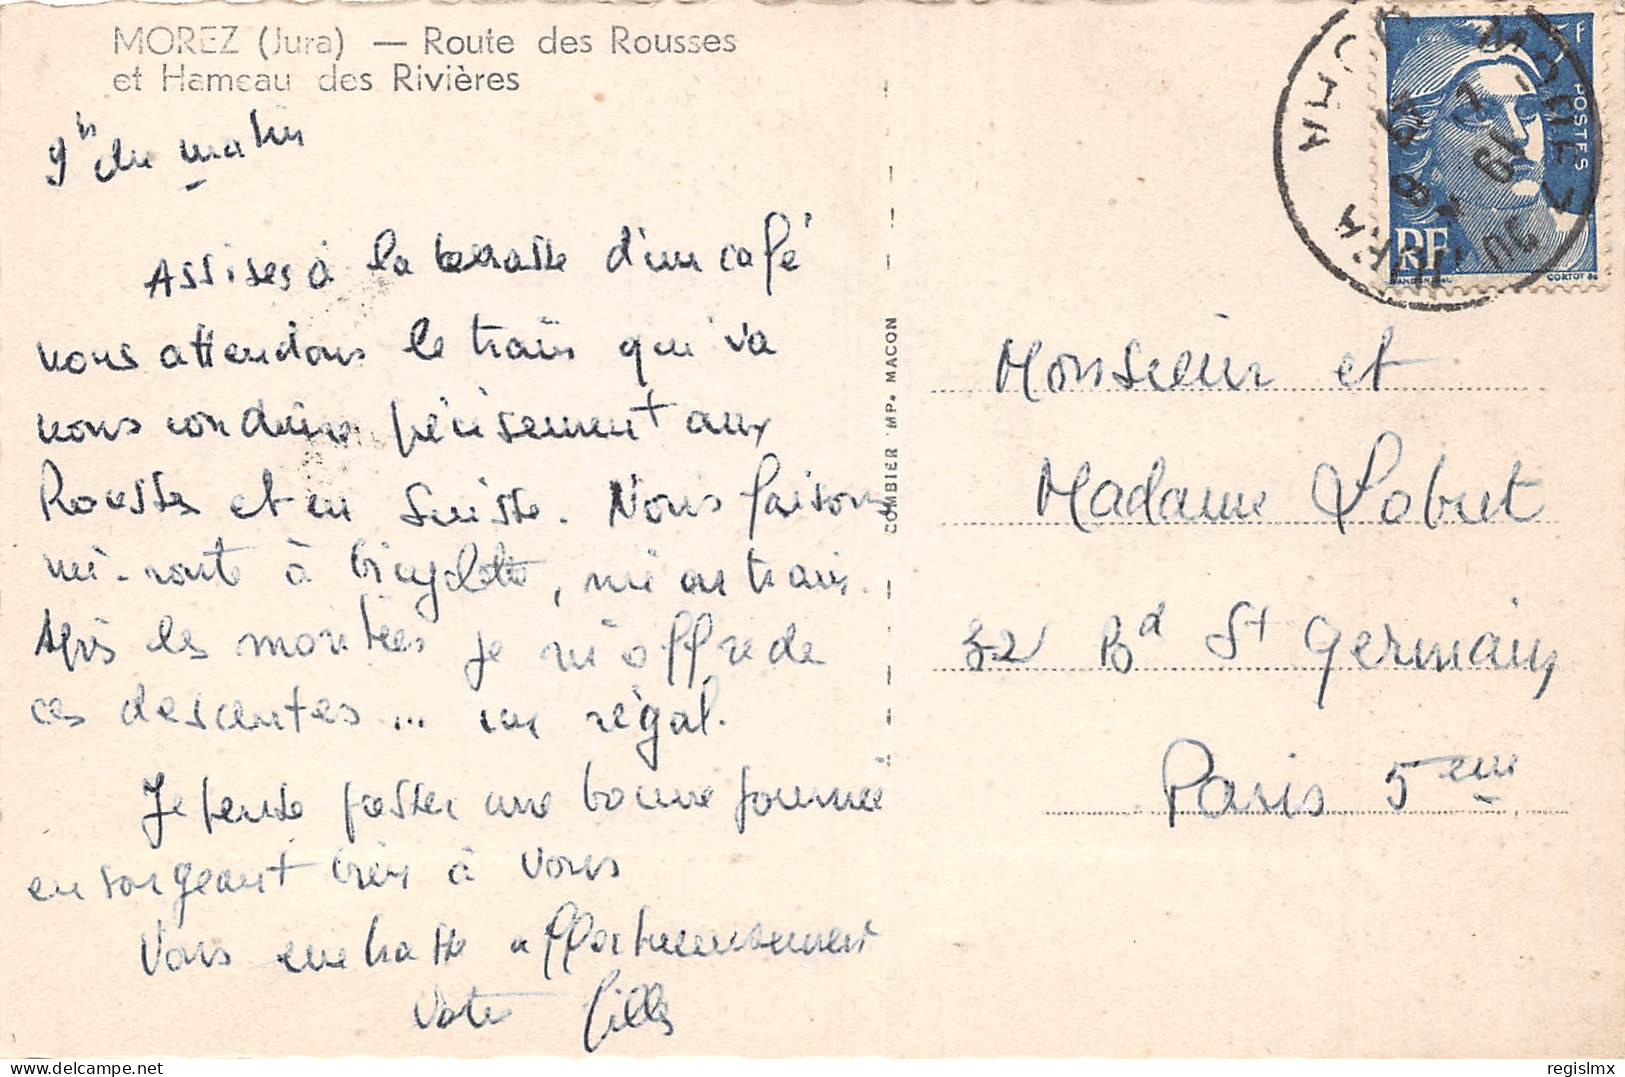 MOREZ (Jura) — Route des Rousses
et Hameau des Rivières
9 hs du matin
Assises à la terrasse d'un café
nous attendons le train qui va
nous conduire précisement aux
Rousses et en Suisse. Nous faisons
mi-route à bicyclette, mi en train.
Après les montées je m'offre de
ces descentes ... un régal.
Je pense passer une bonne journée
en songeant bien à vous
Vous embrasse affectueusement
Votre fille
COMBIER IMP. MACON
POSTES
RF
CORTOT
MOREZ
JURA
Monsieur et
Madame Lobret
32 Bd St Germain
Paris 5eme
regislmx